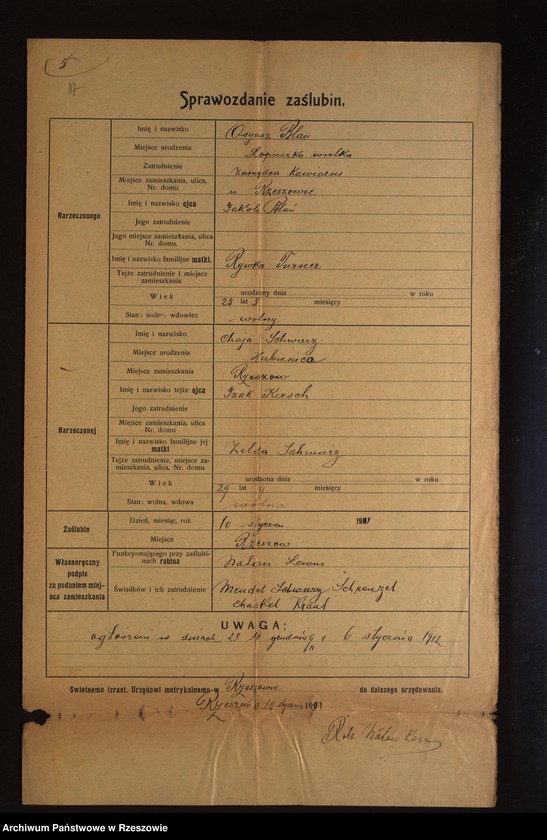 5
Sprawozdanie zaślubin.
Narzeczonego
Imię i nazwisko Blau
Miejsce urodzenia Łopuszka wielka
Zatrudnienie Zarządca Kawiarni
Miejsce zamieszkania, ulica, Nr. domu w Rzeszowie
Imię i nazwisko ojca Jakób Blau
Jego zatrudnienie
Jego miejsce zamieszkania, ulica Nr. domu.
Imię i nazwisko familijne matki, Rywka Turner
Tejże zatrudnienie i miejsce zamieszkania
Wiek urodzony dnia w roku
25 lat 8 miesięcy
Stan: wolny, wdowiec wolny
Narzeczonej
Imię i nazwisko Chaja Schwarz
Miejsce urodzenia
Miejsce zamieszkania Rzeszow
Imię i nazwisko tejże ojca Izak Kirsch
Jego zatrudnienie
Miejsce zamieszkania, ulica Nr. domu
Imię i nazwisko familijne jej matki Zelda Schwarz
Tejże zatrudnienie, miejsce zamieszkania, ulica, Nr. domu
Wiek urodzona dnia w roku
29 lat 9 miesięcy
Stan: wolna, wdowa wolna
Zaślubin
Dzień, miesiąc, rok 10 stycznia 191
Miejsce Rzeszow
Własnoręczny podpis za podaniem miejsca zamieszkania
Funkcyonującego przy zaślubinach rabina
Świadków i ich zatrudnienie Mendel Schwarz
Chaskel
UWAGA:
ogłoszono w dniach 23 30 grudnia i 6 stycznia 1912
Świetnemu Izrael. Urzędowi metrykalnemu w Rzeszowie do dalszego urzędowania.
Rzeszów d 10 stycznia 191
Archiwum Państwowe w Rzeszowie